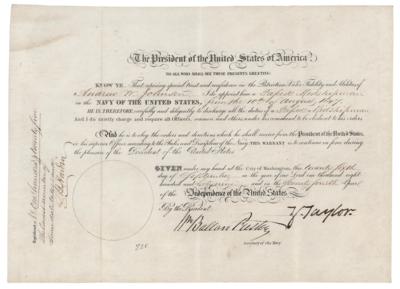 The President of the United States of America
TO ALL WHO SHALL SEE THESE PRESENTS, GREETING:
KNOW YE, That reposing special trust and confidence in the Patriotism, Valor, Fidelity and Abilities of
Andrew W. Johnson I do appoint him a Passed Midshipman
in the NAVY OF THE UNITED STATES, from the 10th of August, 1847.
HE IS THEREFORE carefully and diligently to discharge all the duties of a Passed Midshipman
And I do strictly charge and require all Officers, seamen and others under his command to be obedient to his orders.
And he is to obey the orders and directions which he shall receive from the President of the United States,
or his superior Officer according to the Rules and Discipline of the Navy. THIS WARRANT is to continue in force during
the pleasure of the President of the United States.
GIVEN under my hand at the City of Washington, this twenty fifth
day of September in the year of our Lord one thousand eight
hundred and and in the Seventy fourth Year
of the Independence of the United States.
By the President,
Z. Taylor.
Wm Ballard Preston
Secretary of the Navy
Registered